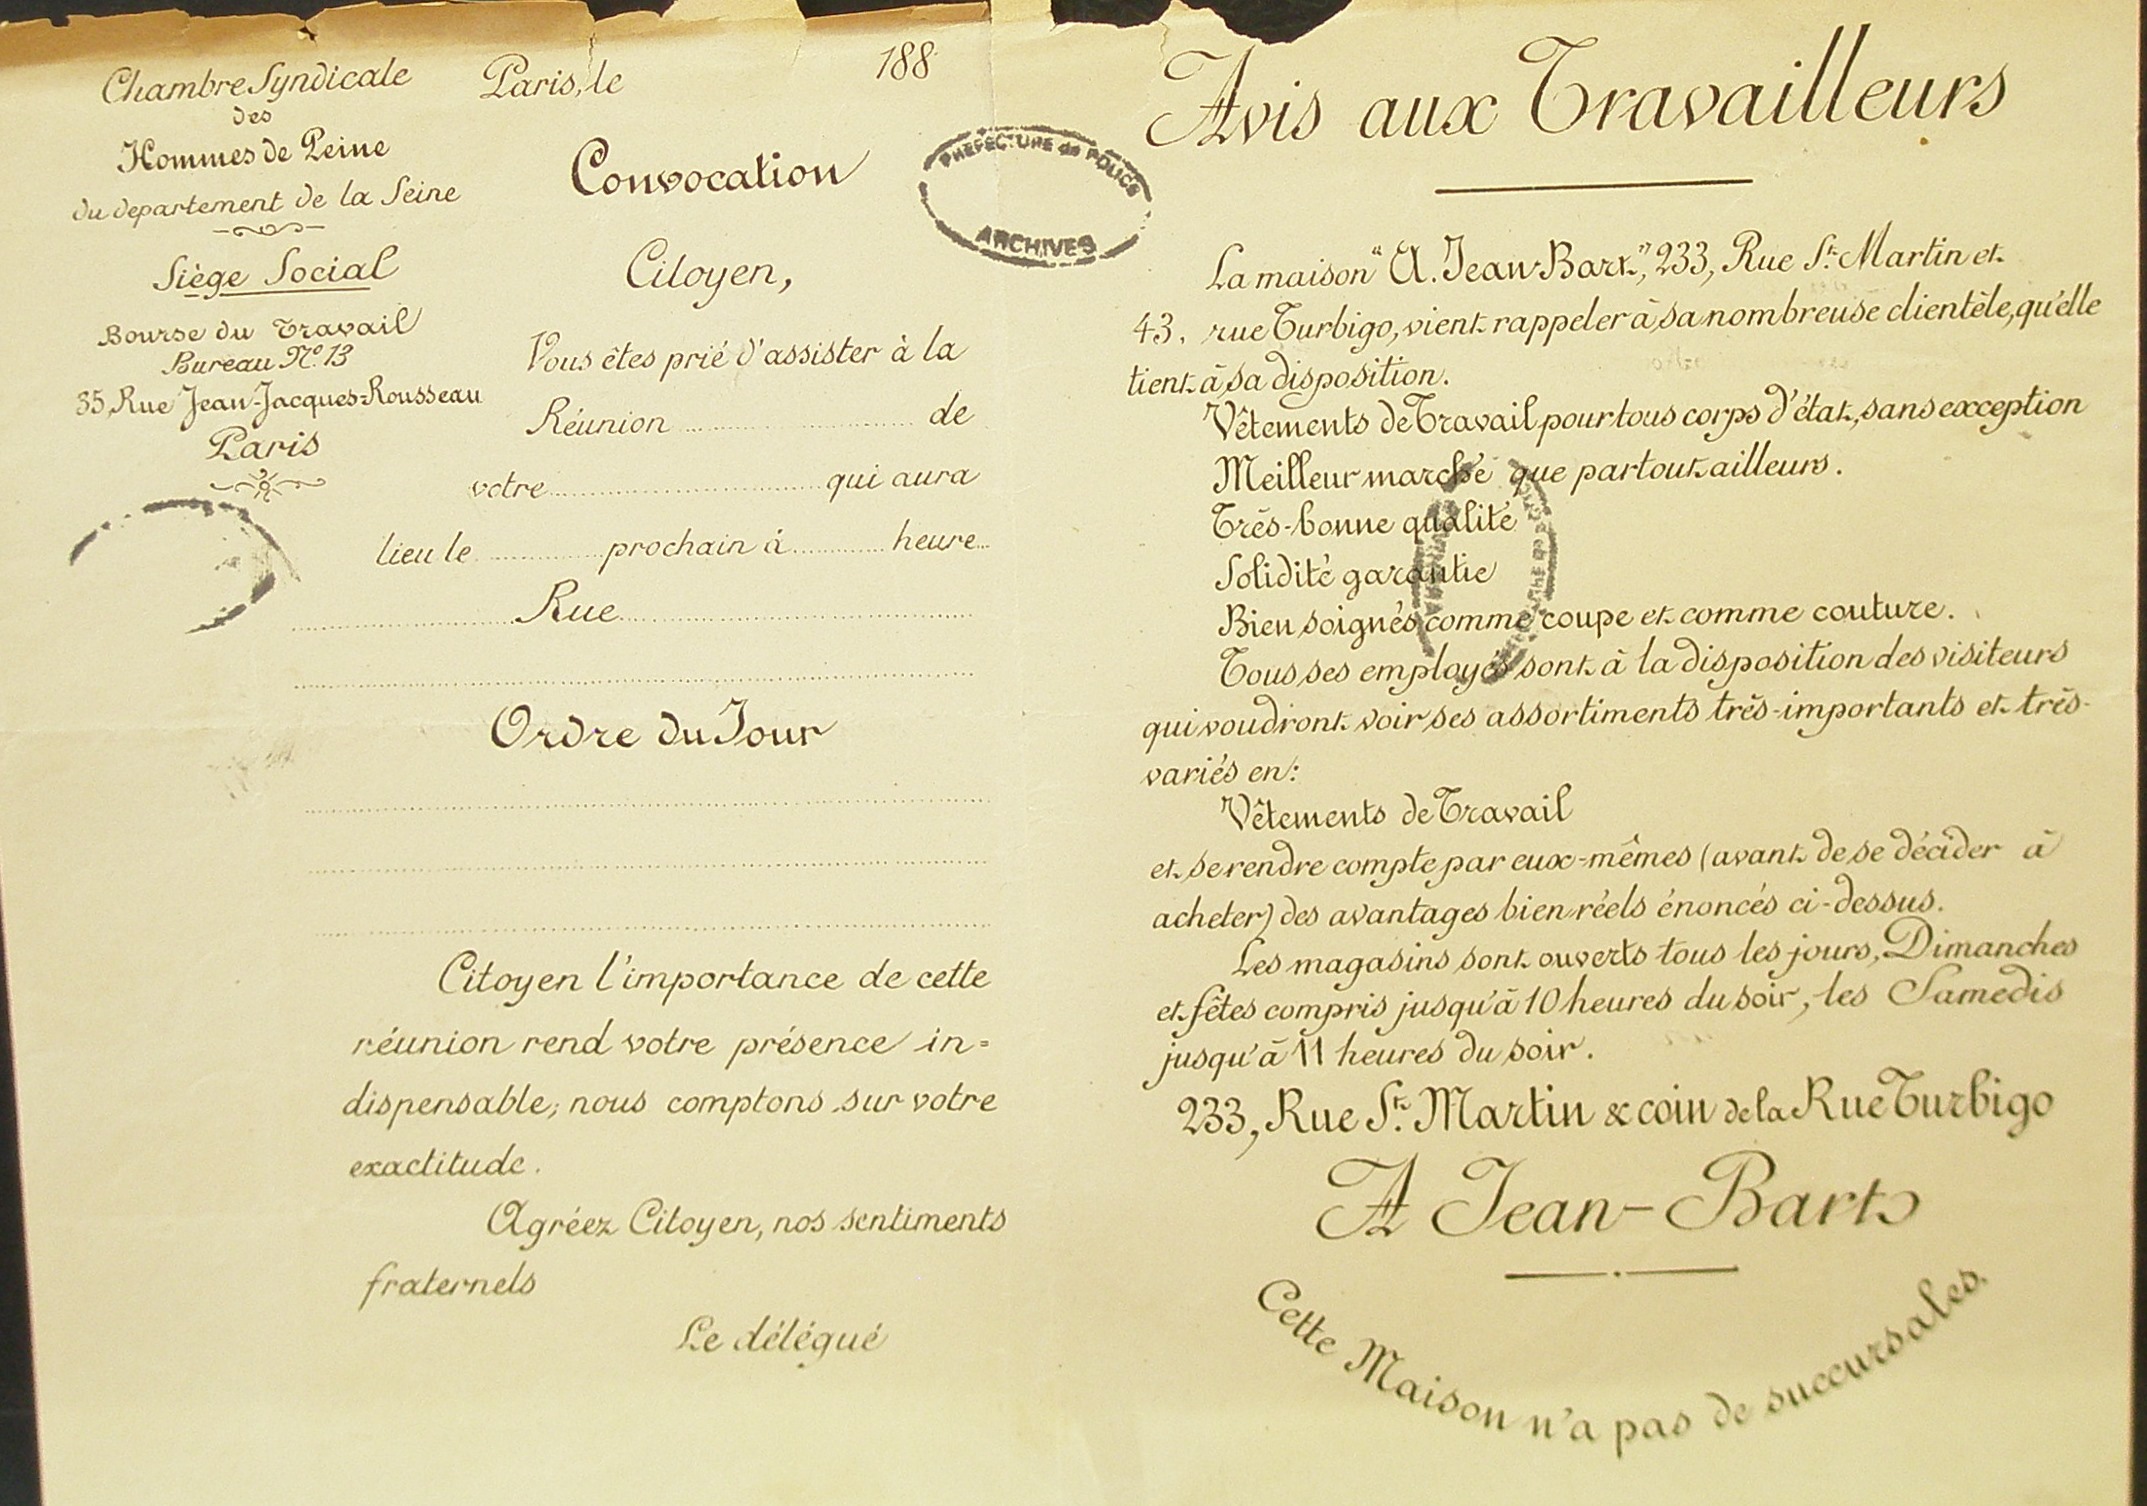 Chambre Syndicale
des
Hommes de Peine
du departement de la Seine
Siège Social
Bourse du Travail
Bureau N° 13
35, Rue Jean-Jacques-Rousseau
Paris
Paris, le 188
Convocation
Citoyen,
Vous êtes prié d'assister à la
Réunion de
votre qui aura
lieu le prochain à heure
Rue
Ordre du Jour
Citoyen l'importance de cette
réunion rend votre présence in=
dispensable, nous comptons sur votre
exactitude.
Agréez Citoyen, nos sentiments
fraternels
Le délégué
PRÉFECTURE de POLICE
ARCHIVES
Avis aux Travailleurs
La maison "A. Jean-Bart", 233, Rue St. Martin et
43, rue Turbigo, vient rappeler à sa nombreuse clientèle, qu'elle
tient à sa disposition.
Vêtements de Travail pour tous corps d'état, sans exception
Meilleur marché que partout ailleurs.
Très-bonne qualité
Solidité garantie
Bien soignés comme coupe et comme couture.
Tous ses employés sont à la disposition des visiteurs
qui voudront voir ses assortiments très-importants et très-
variés en:
Vêtements de Travail
et se rendre compte par eux-mêmes (avant de se décider à
acheter) des avantages bien réels énoncés ci-dessus.
Les magasins sont ouverts tous les jours, Dimanches
et fêtes compris jusqu'à 10 heures du soir, les Samedis
jusqu'à 11 heures du soir.
233, Rue St. Martin & coin de la Rue Turbigo
A Jean-Bart
Cette Maison n'a pas de succursales.